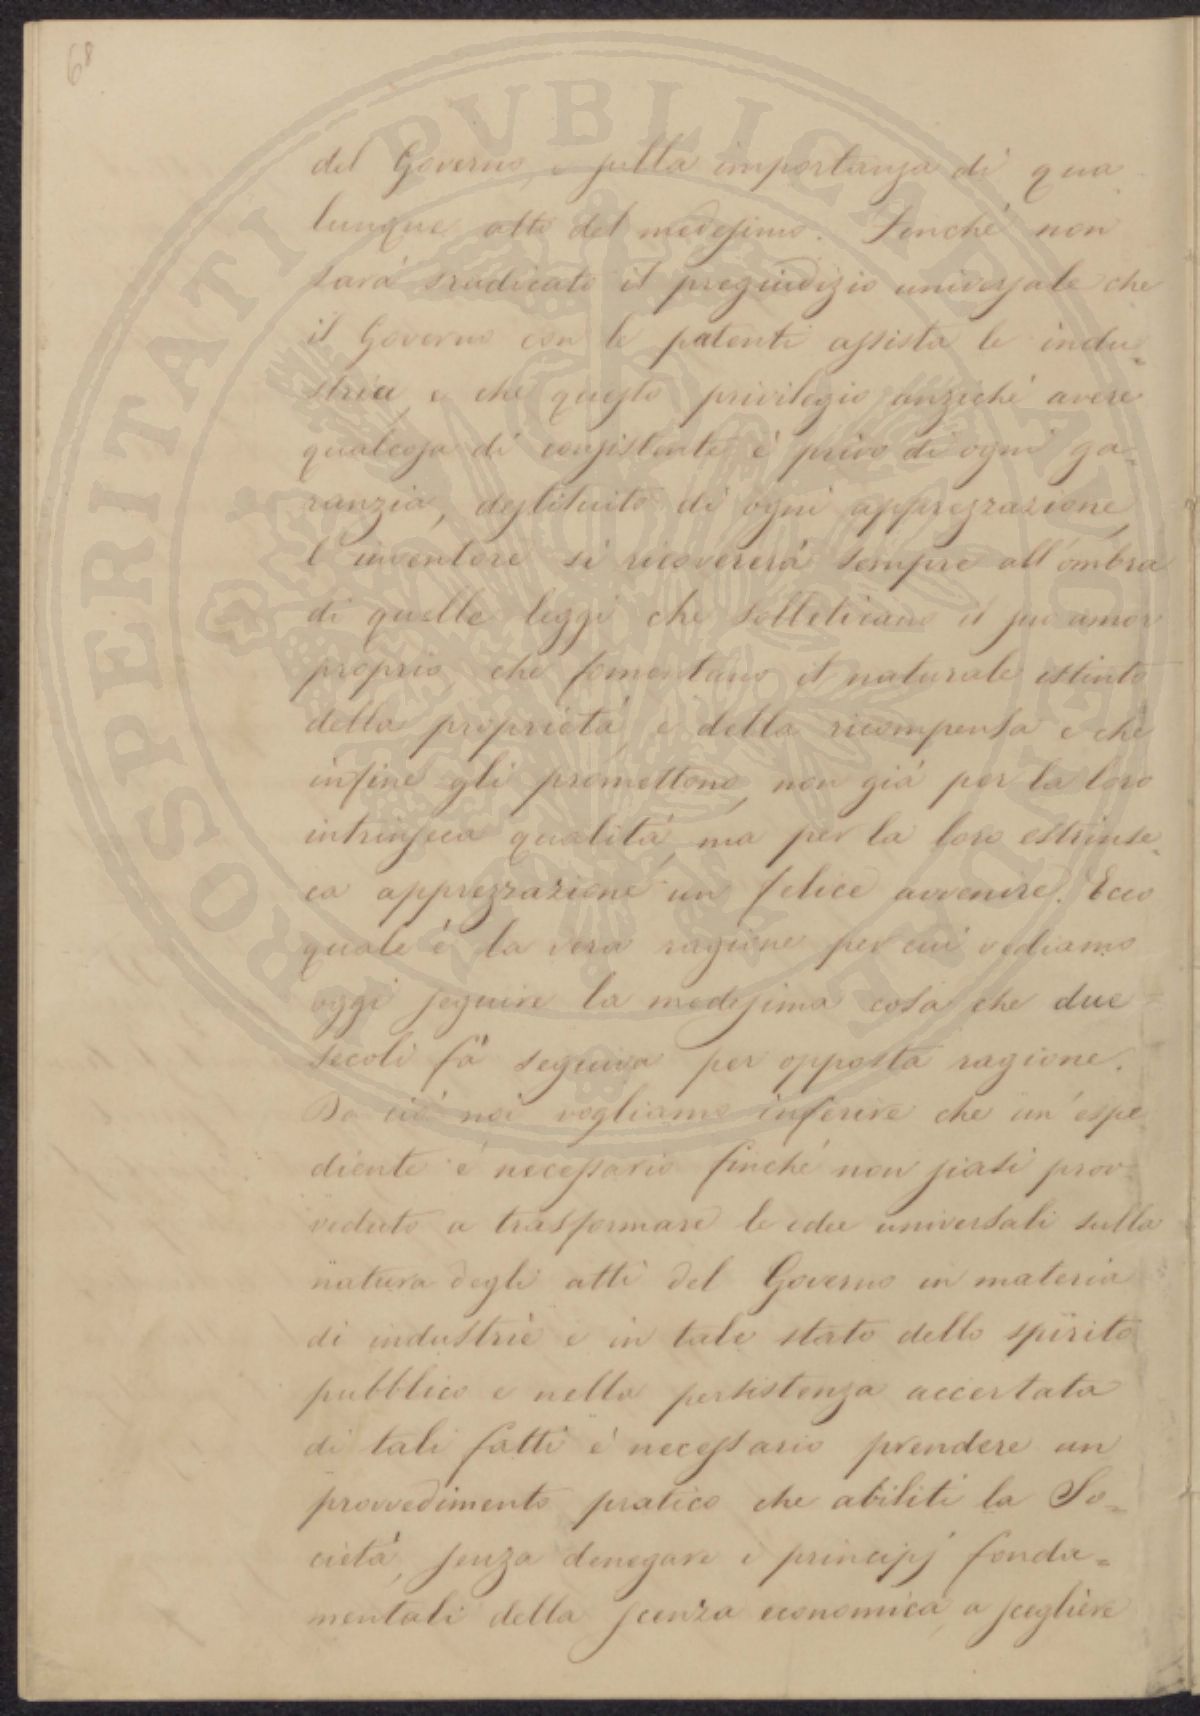 68
del Governo, e sulla importanza di qua
lunque atto del medesimo. Finché non
sará sradicato il pregiudizio universale che
il Governo con le patenti assista le indu=
strie, e che questo privilegio anziché avere
qualcosa di consistente é privo di ogni ga=
ranzia, destituito di ogni apprezzazione,
l'inventore si ricovererá sempre all'ombra
di quelle leggi che solleticano il suo amor
proprio, che fomentano il naturale istinto
della proprietá, e della ricompensa e che
infine gli promettono, non giá per la loro
intrinseca qualitá, ma per la loro estrinse=
ca apprezzazione un felice avvenire. Ecco
quale é la vera ragione per cui vediamo
oggi seguire la medesima cosa che due
secoli fá seguiva per opposta ragione.
Da ció noi vogliamo inferire che un'espe
diente é necessario finché non siasi prov
veduto a trasformare le idee universali sulla
natura degli atti del Governo in materia
di industrie e in tale stato dello spirito
pubblico e nella persistenza accertata
di tali fatti é necessario prendere un
provvedimento pratico che abiliti la So=
cietá, senza denegare i principj fonda=
mentali della scienza economica, a scegliere
PROSPERITATI PVBLICAE AVGENDAE